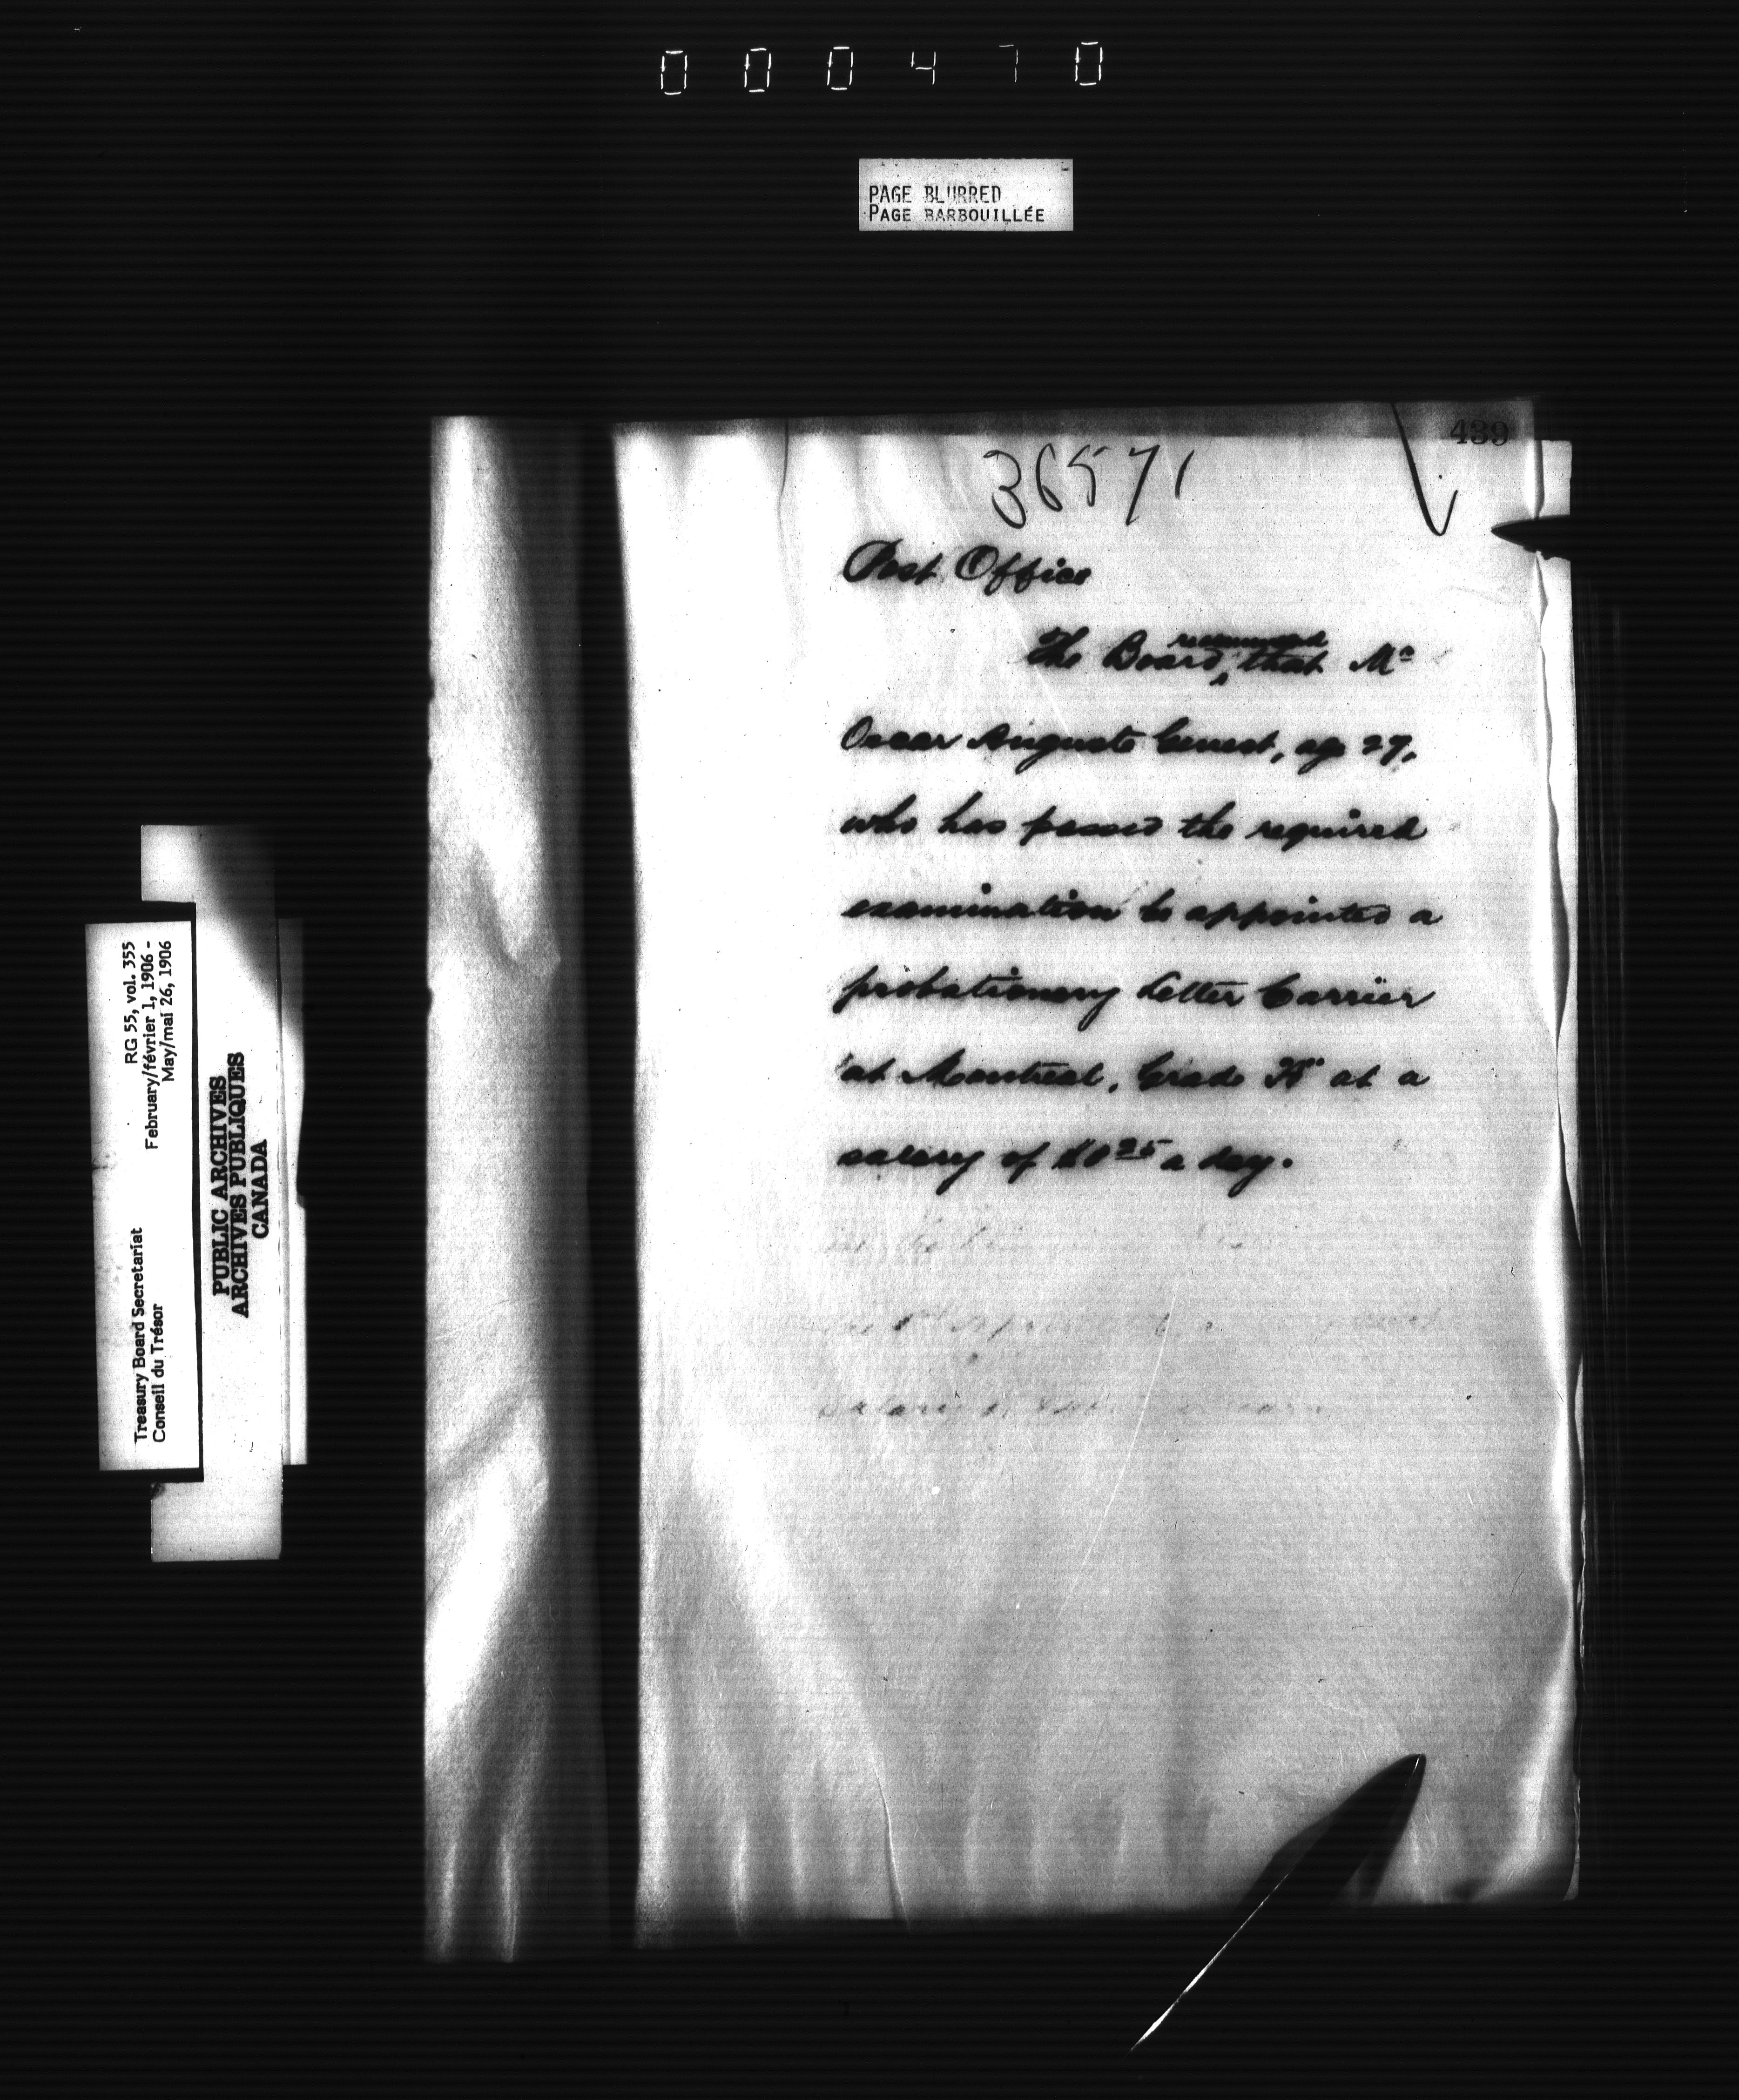 000470
PAGE BLURRED
PAGE BARBOUILLÉE
439
36571
Post Office
The Board recommend that Mr
Oscar Auguste Genest, age 27,
who has passed the required
examination be appointed a
probationary Letter Carrier
at Montreal, Grade "A" at a
salary of $1.25 a day.
RG 55, vol. 355
February/février 1, 1906 -
May/mai 26, 1906
Treasury Board Secretariat
Conseil du Trésor
PUBLIC ARCHIVES
ARCHIVES PUBLIQUES
CANADA